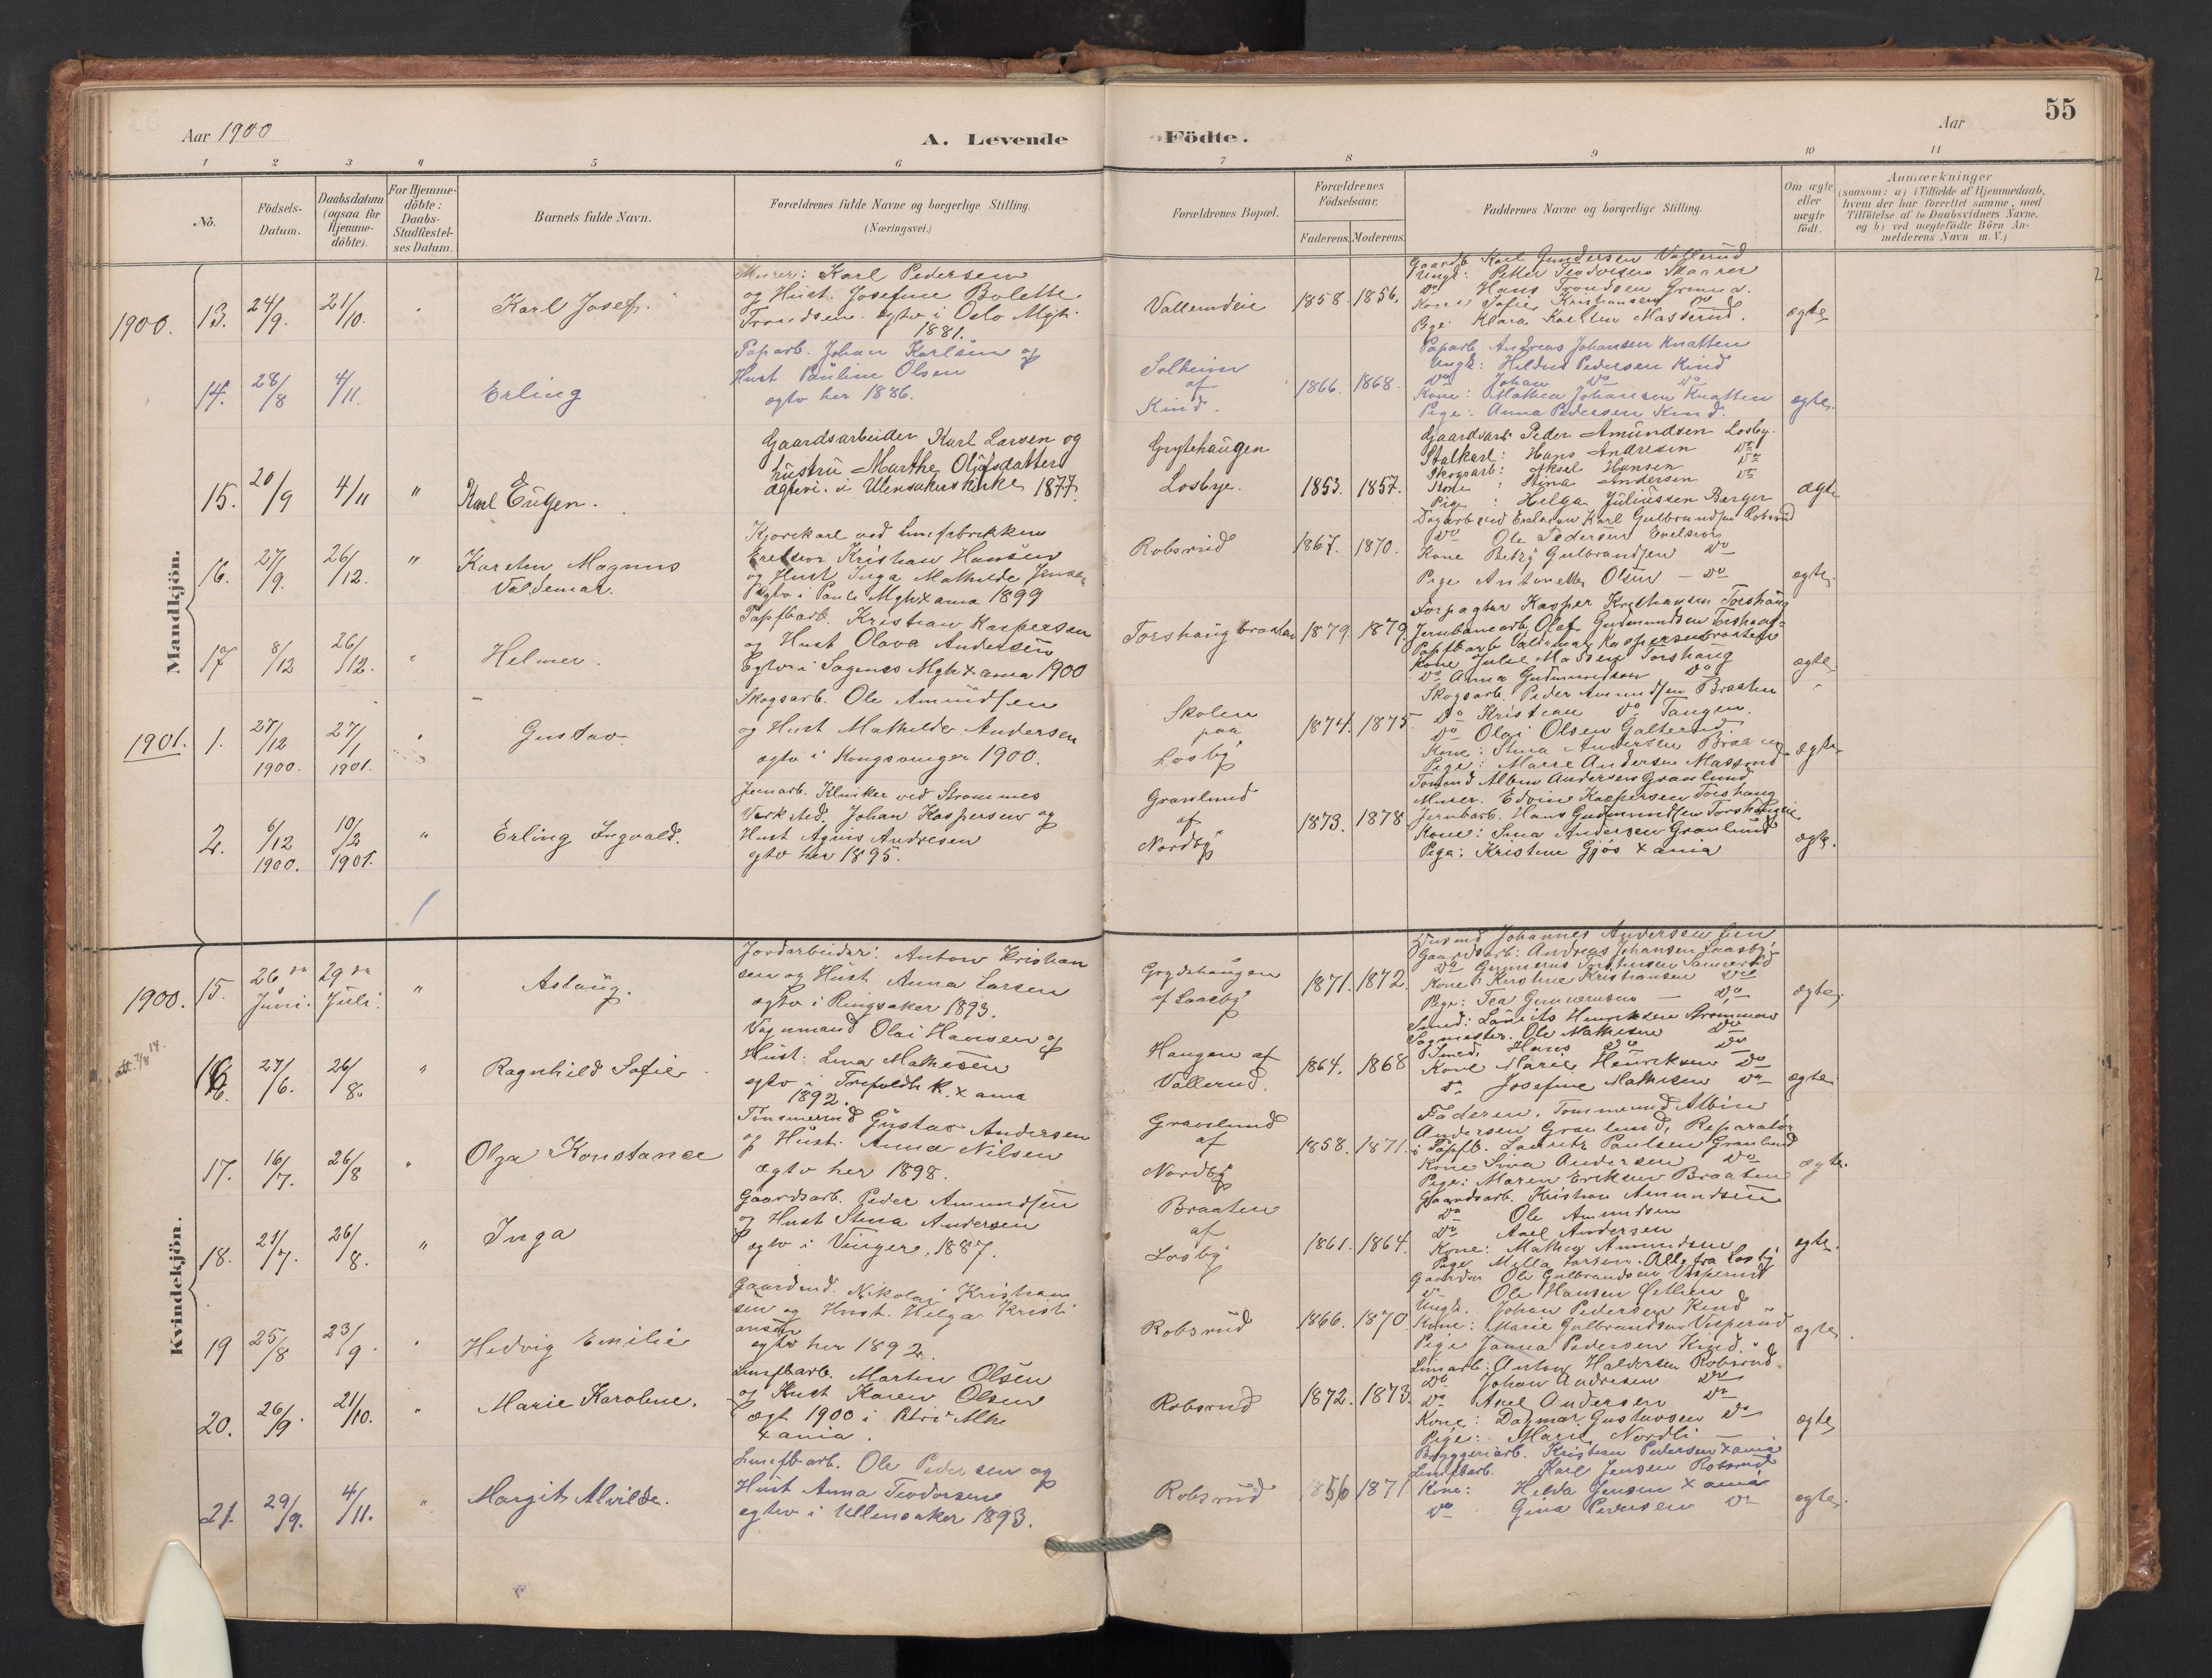 Aar 1900
A. Levende Födte.
Aar
55
1 2 3 4 5 6 7 8 9 10 11
No.
Födsels-Datum.
Daabsdatum (ogsaa for Hjemme-döbte).
For Hjemme-döbte: Daabs-Stadfæstel-ses Datum.
Barnets fulde Navn.
Forældrenes fulde Navne og borgerlige Stilling. (Næringsvei.)
Forældrenes Bopæl.
Forældrenes Födselsaar.
Faderens. Moderens.
Faddernes Navne og borgerlige Stilling.
Om ægte eller uægte födt.
Anmærkninger
(saasom: a) i Tilfælde af Hjemmedaab,
hvem der har forrettet samme, med
Tilföielse af to Daabsvidners Navne.
og b) ved uægtefödte Börn An-
melderens Navn m. V.)
Mandkjön.
1900. 13. 24/9. 21/10. Karl Josef.
Murer: Karl Pedersen
og Hust. Josefine Bolette
Trondsen. egtv i Oslo Mgh.
1881.
Vallerudeie 1858. 1856.
Gaardb. Karl Gundersen Vallerud
Ungk: Petter Teodorsen Skaarer
Do Hans Trondsen Grønna.
Kone Sofie Kristiansen Do
Pge. Klara Karlsen Masserud.
ægte
14. 28/8 4/11. Erling
Paparb. Johan Karlsen og
Hust Pauline Olsen
egtv her 1886.
Solheim
af
Kind.
1866. 1868.
Paparb Andreas Johansen Knatten
Ungk: Hildus Pedersen Kind
Do Johan Do Do
Kone: Mathea Johansen Knatten
Pige: Anna Pedersen Kind.
ægte.
15. 20/9 4/11 " Karl Eugen.
Gaardsarbeider Karl Larsen og
hustru Marthe Olafsdatter
ægtevi. i Ullensakers kirke 1877.
Grytehaugen
Losbye.
1853. 1857.
Gaardsarb: Peder Amundsen Losby.
Stalkarl: Hans Andresen Do
Skogsarb: Aksel Hansen Do
Kone : Stina Andersen Do
Pige : Helga Juliussen Berger
ægte
16. 27/9. 26/12. " Karsten Magnus
Valdemar.
Kjørekarl ved Limfabrikken
Exelsior Kristian Hansen
og Hust Inga Mathilde Jensen
Egtv i Pauls Mgh Xania 1899
Robsrud 1867. 1870.
Dagarb ved Exelsior Karl Gulbrandsen Robsrud
Do Ole Pedersen Exelsior
Kone Betzy Gulbrandsen Do
Pige Antonette Olsen - Do
ægte.
17 8/12 26/12. Helmer.
Papfbarb. Kristian Kaspersen
og Hust Olava Andersen
Egtv i Sagenes Mgh Xania 1900
Torshaugbraaten 1879. 1879.
Forpagter Kasper Kristiansen Torshaug
Jernbanearb. Olaf Gudmundsen Torshaug
Papfbarb Valdemar Kaspersen Braaten
Kone Julie Madsen Torshaug
Do Anna Gudmundsen Do
ægte
1901. 1. 27/12 1900. 27/1 1901. Gustav
Skogsarb. Ole Amundsen
og Hust Mathilde Andersen
egtv i Kongsvinger 1900.
Skolen
paa
Losby
1874. 1875.
Skogsarb. Peder Amundsen Braaten
Do Kristian Do Tangen.
Do Olai Olsen Galterud.
Kone: Stina Andersen Braaten
Pige: Marie Andersen Masserud
ægte
2. 6/12 1900. 10/2 1901. " Erling Ingvald.
Jernarb. Klinker ved Strømmes
Værksted. Johan Kaspersen og
Hust Agnes Andresen
egtv her 1895.
Granlund
af
Nordby
1873. 1878
Tømmd Albin Andersen Granlund
Murer. Edvin Kaspersen Torshaug
Jernbarb. Hans Gudmundsen Torshaugeie
Kone: Sina Andersen Granlund
Pige: Kristine Gjøs Xania
ægte.
Kvindekjön.
1900. 15. 26de Juni. 29de Juli. " Aslaug.
Jordarbeider: Anton Kristian
sen og Hust Anna Larsen
egtv i Ringsaker 1893.
Grydehaugen
af Laasby
1871. 1872.
Johannes Andersen
Gaardsarb: Andreas Johansen Laasby
Do Gunnerus
Kone Kirstine Kristiansen Do
Pige: Tea Gunnerusen - Do
ægte.
att. 7/8 14.
16. 27/6. 26/8. " Ragnhild Sofie
Vognmand Olai Hansen og
Hust. Lina Mathesen
egtv i Trefoldh K. Xania
1892.
Haugen af
Vallerud.
1864. 1868
Smed: Lauritz Henriksen Strømmen
Sagmester. Ole Mathesen Do
Smed, Hans Do Do
Kone Marie Henriksen Do
Do Josefine Mathesen Do
ægte
17. 16/7. 26/8 Olga Konstance
Tømmermd Gustav Andersen
og Hust. Anna Nilsen
egtv her 1898.
Granlund
af
Nordby
1858. 1871.
Faderen. Tømmermd Albin
Andersen Granlund, Reparatør
i Papfb. Lauritz Paulsen Granlund
Kone Sina Andersen Do
Pige: Maren Eriksen Braaten
ægte.
18. 21/7. 26/8. " Inga
Gaardsarb. Peder Amundsen
og Hust Stina Andersen
egtv i Vinger. 1887.
Braaten
af
Losby
1861. 1864.
Gaardsarb. Kristian Amundsen
Do Ole Amundsen
Do Axel Andersen
Kone: Mathea Amundsen
Pige Milla Larsen. Alle fra Losby
egte.
19 25/8 23/9. Hedvig Emilie
Gaardmd. Nikolai Kristian
sen og Hust. Helga Kristi
ansen
egtv her 1892.
Robsrud 1866. 1870
Gaardbr Ole Gulbrandsen Visperud
Do Ole Hansen
Ungk. Johan Pedersen Kind
Kone: Marie Gulbrandsen Visperud
Pige Janna Pedersen Kind.
ægte.
20. 26/9. 21/10. Marie Karoline.
Limfbarb. Martin Olsen
og Hust Karen Olsen
egt 1900 i Petri Mke
Xania.
Robsrud 1872. 1873.
Limarb: Anton Haldorsen Robsrud
Do Johan Andresen Do
Do Axel Andersen Do
Kone: Dagmar Gustavsen Do
Pige: Marie Nordli -
ægte
21. 29/9. 4/11. Margit Alvilde.
Limfbarb. Ole Pedersen og
Hust Anna Teodorsen
egtev i Ullensaker 1893.
Robsrud 1856 1871.
Bryggeriarb. Kristian Pedersen Xania
Limfbarb. Karl Jensen Robsrud
Kone: Hilda Jensen Xania
Do Gina Pedersen Do
egte.